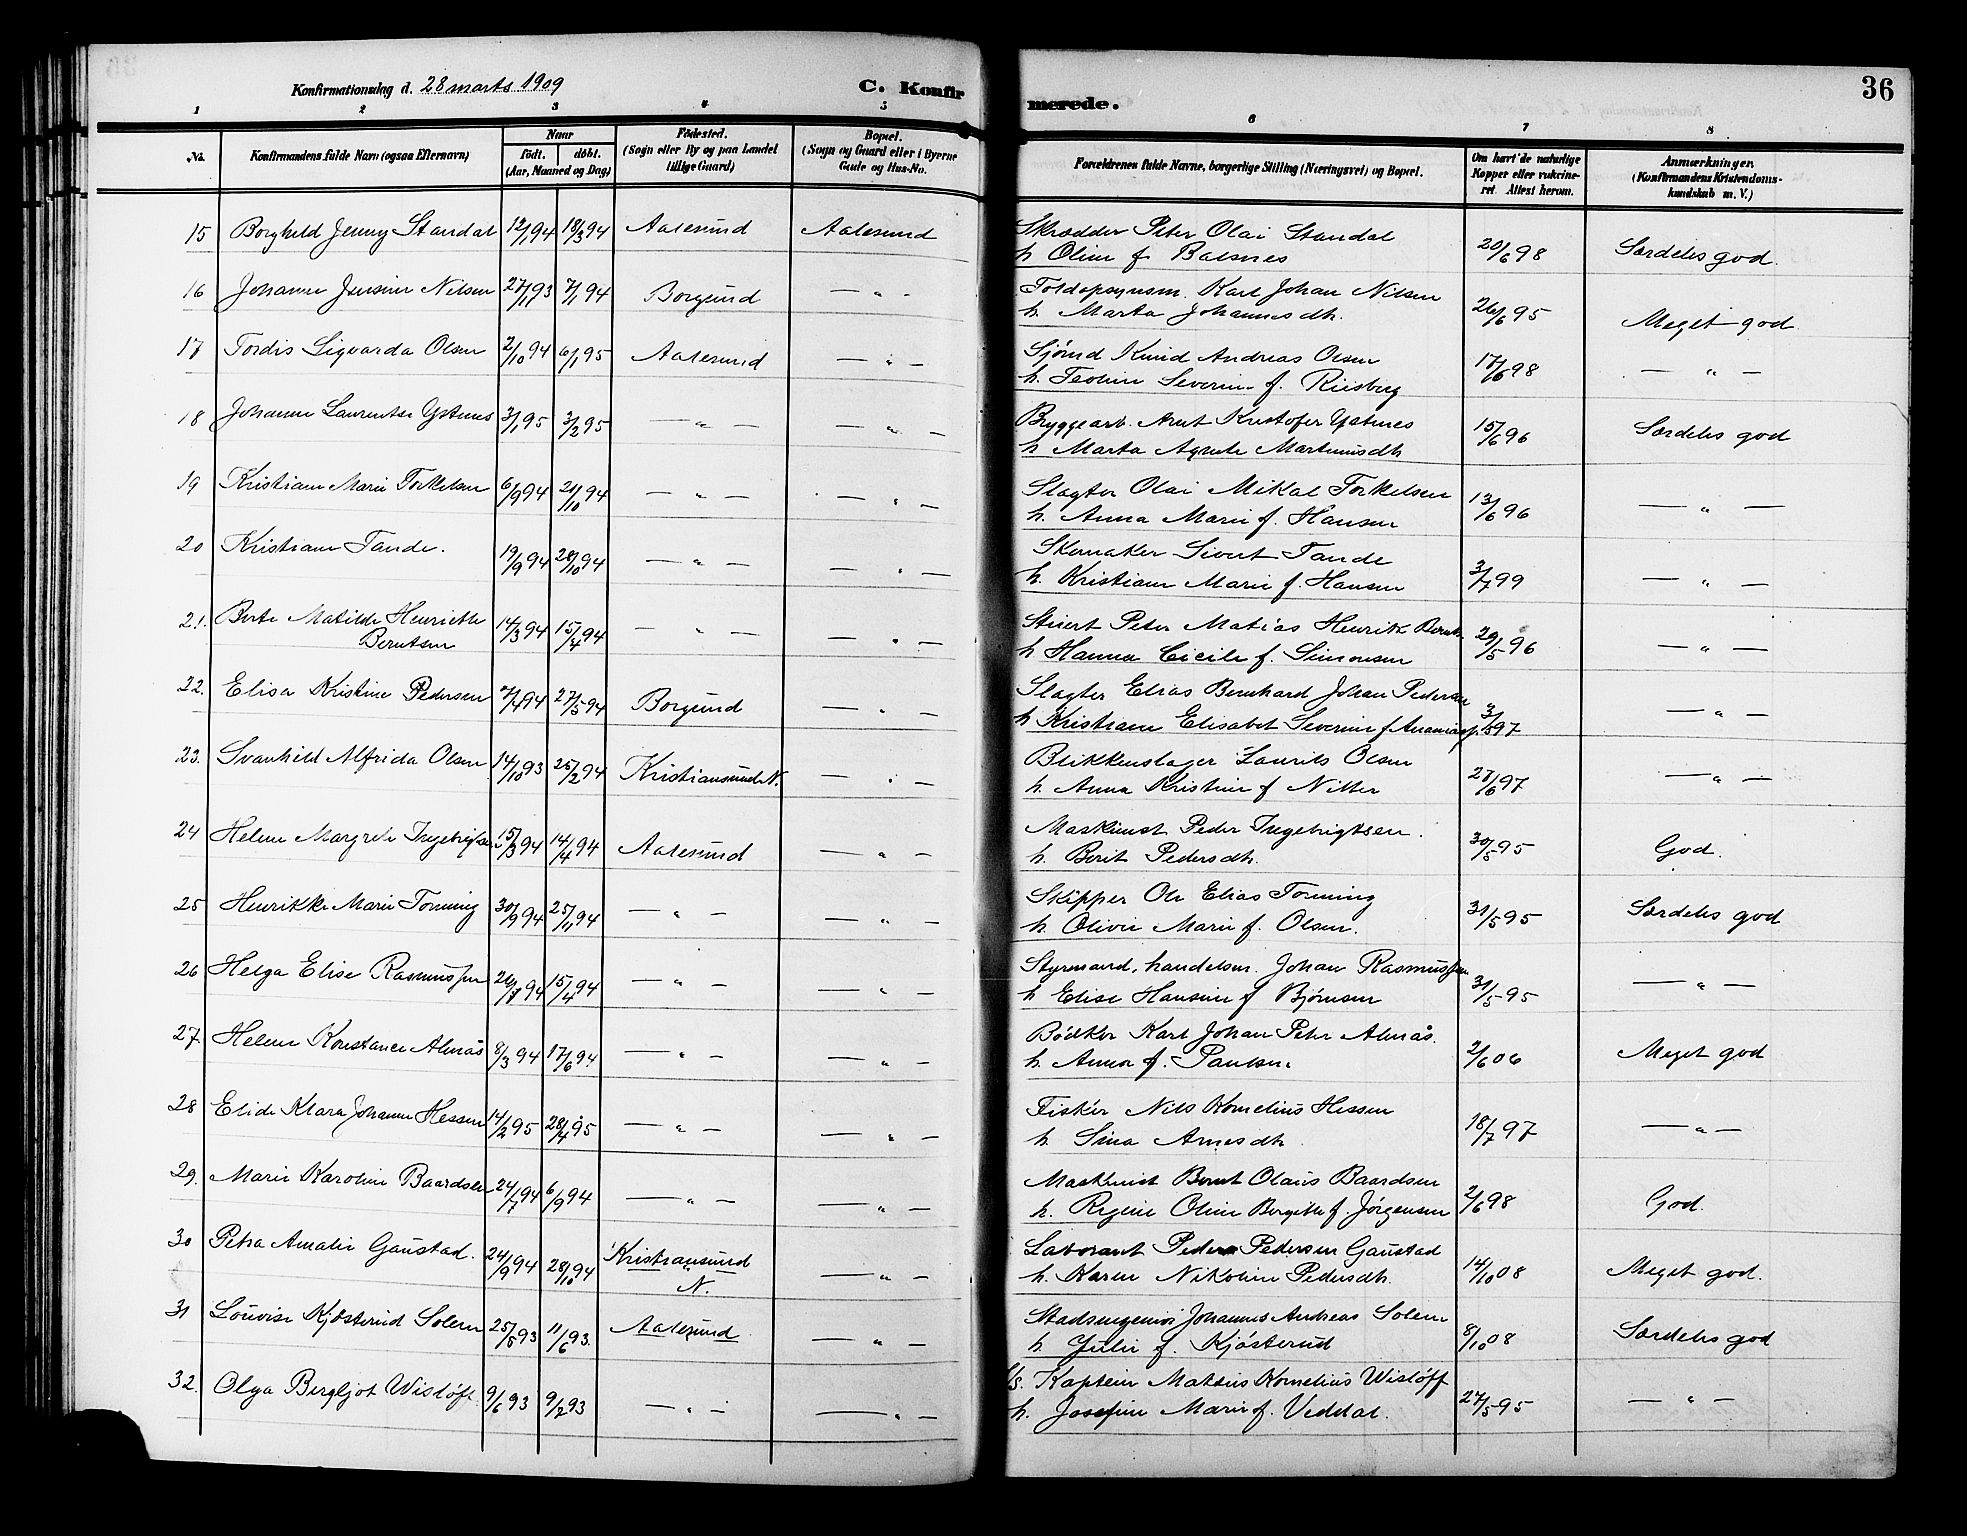 36
Konfirmationsdag d. 28 marts 1909
C. Konfirmerede.
1 2 3 4 5 6 7 8
No.
Konfirmandens fulde Navn (ogsaa Efternavn)
Naar
født. døbt.
(Aar, Maaned og Dag)
Fødested.
(Sogn eller By og paa Landet
tillige Gaard)
Bopæl.
(Sogn og Gaard eller i Byerne
Gade og Hus-No.
Forældrenes fulde Navne, borgerlige Stilling (Næringsvei) og Bopæl.
Om havt de naturlige
Kopper eller vakcine-
ret. Attest herom.
Anmærkninger.
(Konfirmandens Kristendoms-
kundskab m. V.)
15 Borghild Jenny Standal 12/1 94 18/3 94 Aalesund Aalesund Skrædder Peter Olai Standal 20/6 98 Særdeles god.
h Oline f Balsnes
16 Johanne Jensine Nilsen 27/1 93 7/1 94 Borgund — " - Toldopsynsm. Karl Johan Nilsen 26/6 95 Meget god.
h. Marta Johannesdh.
17 Tordis Sigvarda Olsen 2/10 94 6/1 95 Aalesund — " — Sjømd Knud Andreas Olsen 17/6 98 — " —
h. Teoline Severine f. Riisberg
18 Johanne Laurentse Ystnes 3/1 95 3/2 95 — " — — " — Bryggearb. Arnt Kristofer Ystnes 15/6 96 Særdeles god
h Marta Agnete Martinusdh
19 Kristiane Marie Torkelsen 6/9 94 21/10 94 — " — — " — Slagter Olai Mikal Torkelsen 13/6 96 — " —
h. Anna Marie f. Hansen
20 Kristiane Tande. 19/9 94 28/10 94 — " — — " — Skomaker Sivert Tande 3/7 99 — " —
h. Kristiane Marie f. Hansen
21. Berte Matilde Henriette 14/3 94 15/4 94 — " — — " — Stuert Peter Matias Henrik Bernts. 29/5 96 — " —
Berntsen h Hanna Cicile f. Simonsen
22. Elisa Kristine Pedersen 7/4 94 27/5 94 Borgund — " — Slagter Elias Bernhard Johan Pedersen 3/5 97 — " —
h Kristiane Elisabet Severine f
23. Svanhild Alfrida Olsen 14/10 93 25/2 94 Kristiansund N. — " — Blikkenslager Laurits Olsen 27/6 97 — " —
h. Anna Kristine f Nitter
24 Helene Margrete Ingebrigtsen 15/3 94 14/4 94 Aalesund — " — Maskinist Peder Ingebrigtsen. 30/5 95 God.
h. Berit Pedersdh.
25 Henrikke Marie Torning 30/9 94 25/11 94 — " — — " — Skipper Ole Elias Torning 31/5 95 Særdeles god
h. Olivie Marie f. Olsen.
26 Helga Elise Rasmussen 26/1 94 15/4 94 — " — — " — Styrmand, handelsm. Johan Rasmussen 31/5 95 — " —
h Elise Hansine f Bjørnsen
27. Helene Konstance Almås 8/3 94 17/6 94 — " — — " — Bødker Karl Johan Peter Almås. 2/6 06 Meget god
h. Anna f. Paulsen.
28 Elide Klara Johanne Hessen 14/2 95 28/4 95 — " — — " — Fisker Nils Kornelius Hessen 18/7 97 — " —
h. Sina Arnesdh.
29. Marie Karoline Baardsen 24/7 94 6/9 94 — " — — " — Maskinist Bernt Olaus Baardsen 2/6 98 God.
h. Regine Oline Bergitte f. Jørgensen
30 Petra Amalie Gaustad. 24/9 94 28/10 94 Kristiansund N. — " — Laborant Peder Pedersen Gaustad 14/10 08 Meget god.
h. Karen Nikoline Pedersdh.
31 Louise Kjøsterud Solem 25/5 93 11/6 93. Aalesund — " — Stadsingeniør Johannes Andreas Solem 8/10 08 Særdeles god
h Julie f. Kjøsterud
32. Olga Bergljot Wisløff. 9/6 93 9/7 93 — " — — " — Kaptein Mattius Kornelius Wisløff 27/5 95 — " —
h. Josefine Marie f. Veddal.